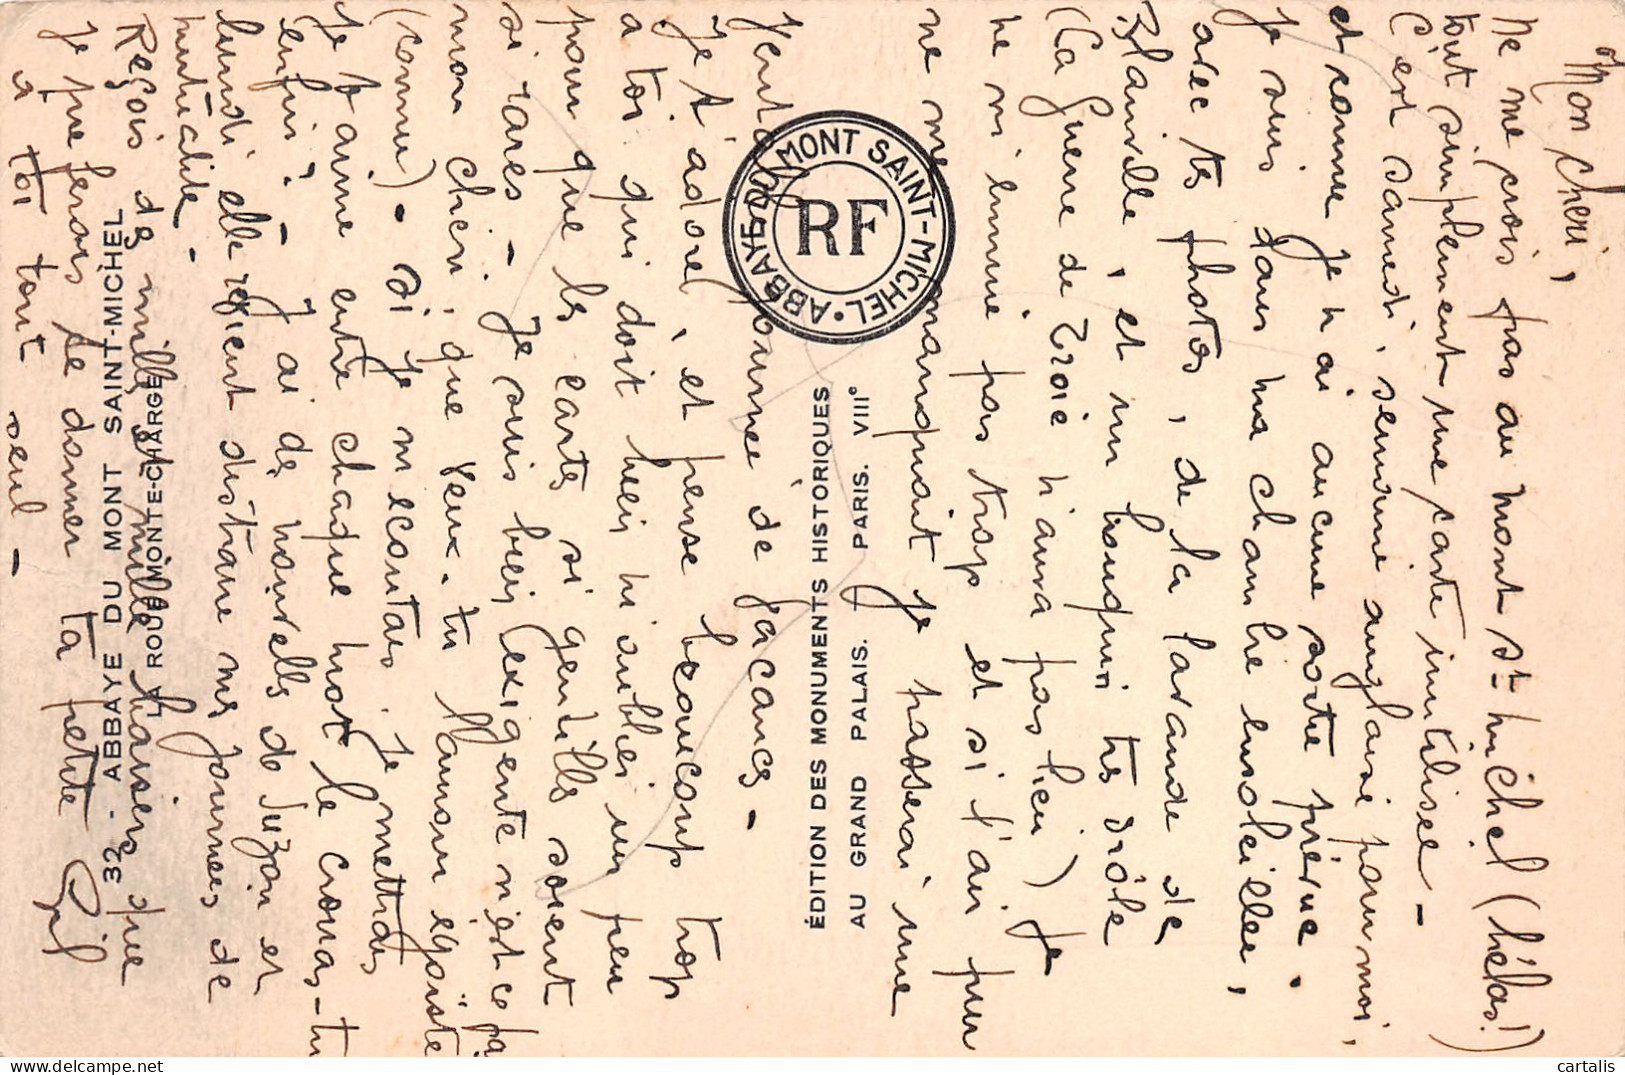 Mon cheri,
Ne me crois pas au mont st-michel (hélas!)
tout simplement une carte inutilisée -
C'est samedi, semaine anglaise pour moi,
et comme je n'ai aucune sortie prévue.
je suis dans ma chambre ensoleillée,
avec tes photos, de la lavande de
Blainville, et un bouquin très drôle
(La guerre de Troie n'aura pas lieu) je
ne m'ennuie pas trop et si l'air pur
ne me manquait je passerai une
vraie journée de vacances -
Je t'adore, et pense beaucoup trop
a toi qui doit bien m'oublier un peu
pour que les cartes si gentilles soient
si rares - Je suis bien exigente n'est ce pas
mon chéri, que veux-tu l'amour égoïste
(connu) - Si je m'ecoutais, je mettrais
je t'aime entre chaque mot le croiras-tu
enfin? - J'ai de nouvelles de Suzon et
lundi elle revient distraire mes journées de
Reçois de mille et mille baisers que
je préférerais te donner ta petite
a toi tout seul -
32 - ABBAYE DU MONT SAINT-MICHEL
LA ROUE MONTE-CHARGE
ÉDITION DES MONUMENTS HISTORIQUES
AU GRAND PALAIS. PARIS. VIIIe
ABBAYE DU MONT SAINT-MICHEL
RF
cartalis.com